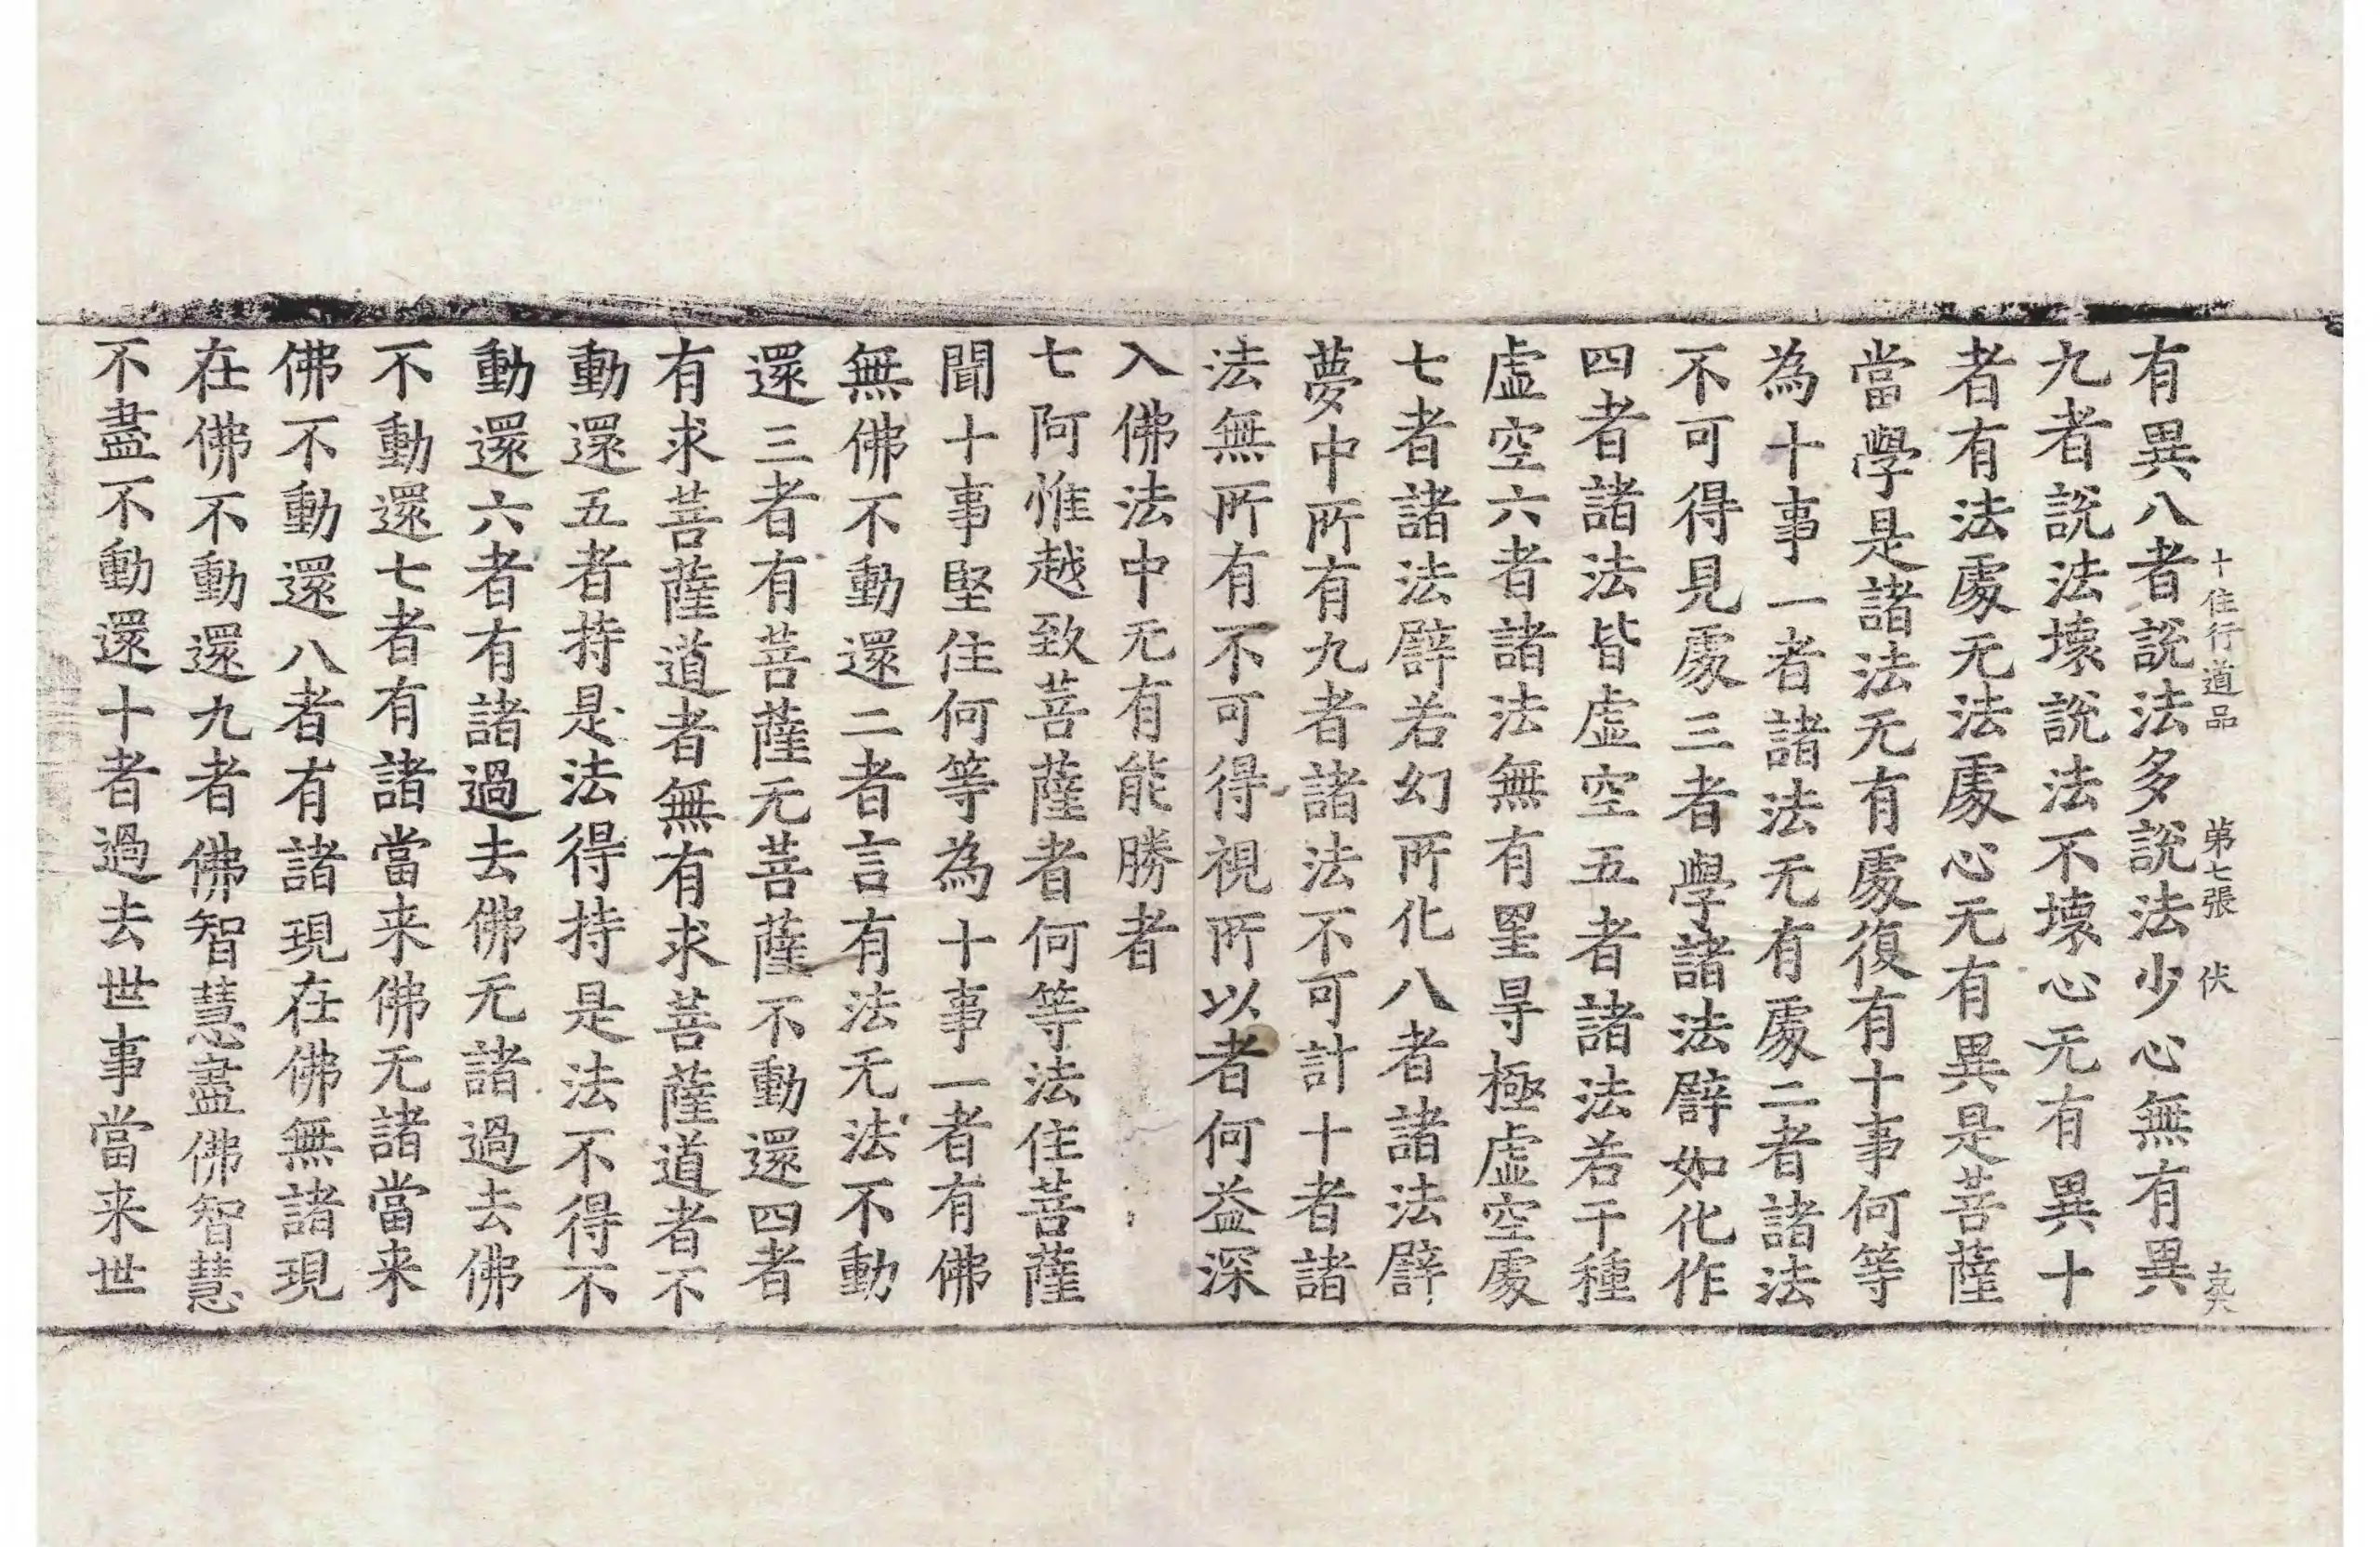 十住行道品　第七張　伏
有異八者說法多說法少心無有異
九者說法壞說法不壞心无有異十
者有法處无法處心无有異是菩薩
當學是諸法无有處復有十事何等
為十事一者諸法无有處二者諸法
不可得見處三者學諸法譬如化作
四者諸法皆虛空五者諸法若干種
虛空六者諸法無有罣㝵極虛空處
七者諸法譬若幻所化八者諸法譬
夢中所有九者諸法不可計十者諸
法無所有不可得視所以者何益深
入佛法中无有能勝者
七阿惟越致菩薩者何等法住菩薩
聞十事堅住何等為十事一者有佛
無佛不動還二者言有法无法不動
還三者有菩薩无菩薩不動還四者
有求菩薩道者無有求菩薩道者不
動還五者持是法得持是法不得不
動還六者有諸過去佛无諸過去佛
不動還七者有諸當来佛无諸當来
佛不動還八者有諸現在佛無諸現
在佛不動還九者佛智慧盡佛智慧
不盡不動還十者過去世事當来世